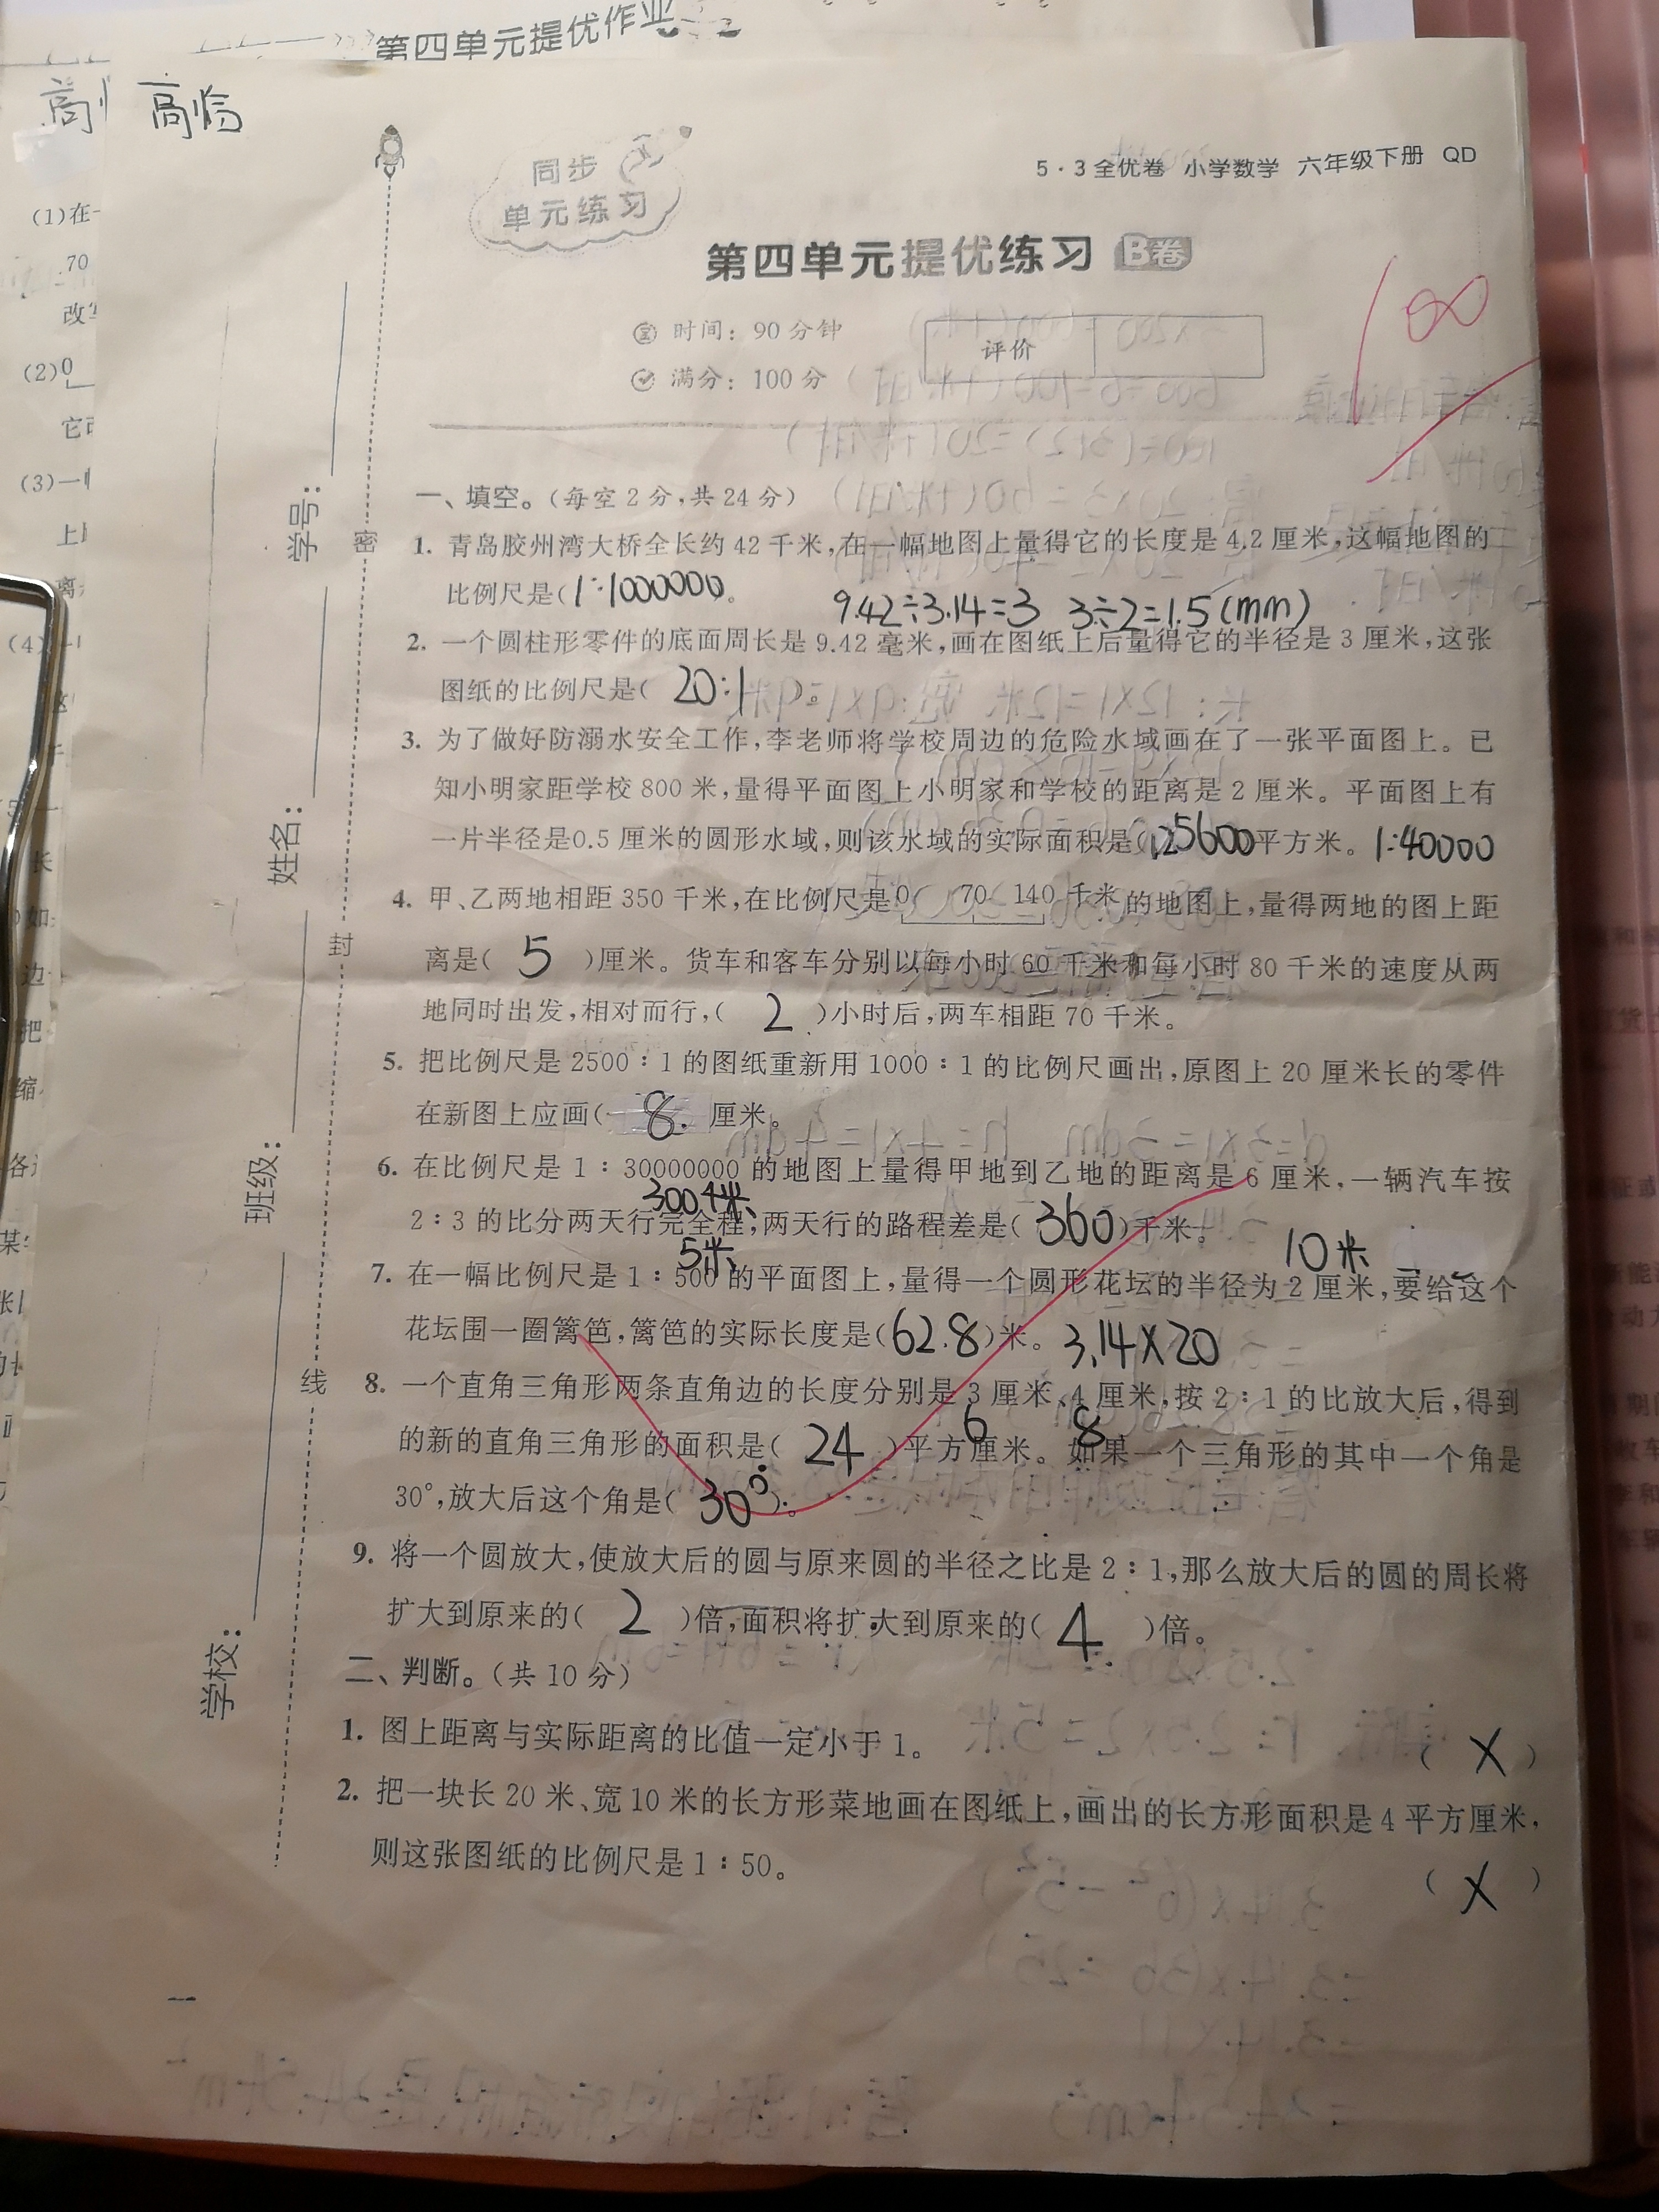 第四单元提优作业
高怡
(1)在
70
改写
(2)0
它
(3)一
上
离
(4)
同步
单元练习
5·3全优卷 小学数学 六年级下册 QD
第四单元提优练习 B卷
100
时间：90分钟
满分：100分
评价
学号：
姓名：
班级：
学校：
密
封
线
一、填空。(每空2分,共24分)
1. 青岛胶州湾大桥全长约42千米,在一幅地图上量得它的长度是4.2厘米,这幅地图的
比例尺是(1:1000000)。
9.42÷3.14=3 3÷2=1.5(mm)
2. 一个圆柱形零件的底面周长是9.42毫米,画在图纸上后量得它的半径是3厘米,这张
图纸的比例尺是( 20:1 )。
3. 为了做好防溺水安全工作,李老师将学校周边的危险水域画在了一张平面图上。已
知小明家距学校800米,量得平面图上小明家和学校的距离是2厘米。平面图上有
一片半径是0.5厘米的圆形水域,则该水域的实际面积是(125600)平方米。 1:40000
4. 甲、乙两地相距350千米,在比例尺是0 70 140千米的地图上,量得两地的图上距
离是( 5 )厘米。货车和客车分别以每小时60千米和每小时80千米的速度从两
地同时出发,相对而行,( 2 )小时后,两车相距70千米。
5. 把比例尺是2500:1的图纸重新用1000:1的比例尺画出,原图上20厘米长的零件
在新图上应画( 8 )厘米。
6. 在比例尺是1:30000000的地图上量得甲地到乙地的距离是6厘米,一辆汽车按
300千米
2:3的比分两天行完全程,两天行的路程差是(360)千米。
5米 10米
7. 在一幅比例尺是1:500的平面图上,量得一个圆形花坛的半径为2厘米,要给这个
花坛围一圈篱笆,篱笆的实际长度是(62.8)米。 3.14×20
8. 一个直角三角形两条直角边的长度分别是3厘米、4厘米,按2:1的比放大后,得到
6 8
的新的直角三角形的面积是( 24 )平方厘米。如果一个三角形的其中一个角是
30°,放大后这个角是( 30° )。
9. 将一个圆放大,使放大后的圆与原来圆的半径之比是2:1,那么放大后的圆的周长将
扩大到原来的( 2 )倍,面积将扩大到原来的( 4 )倍。
二、判断。(共10分)
1. 图上距离与实际距离的比值一定小于1。 ( × )
2. 把一块长20米、宽10米的长方形菜地画在图纸上,画出的长方形面积是4平方厘米,
则这张图纸的比例尺是1:50。 ( × )